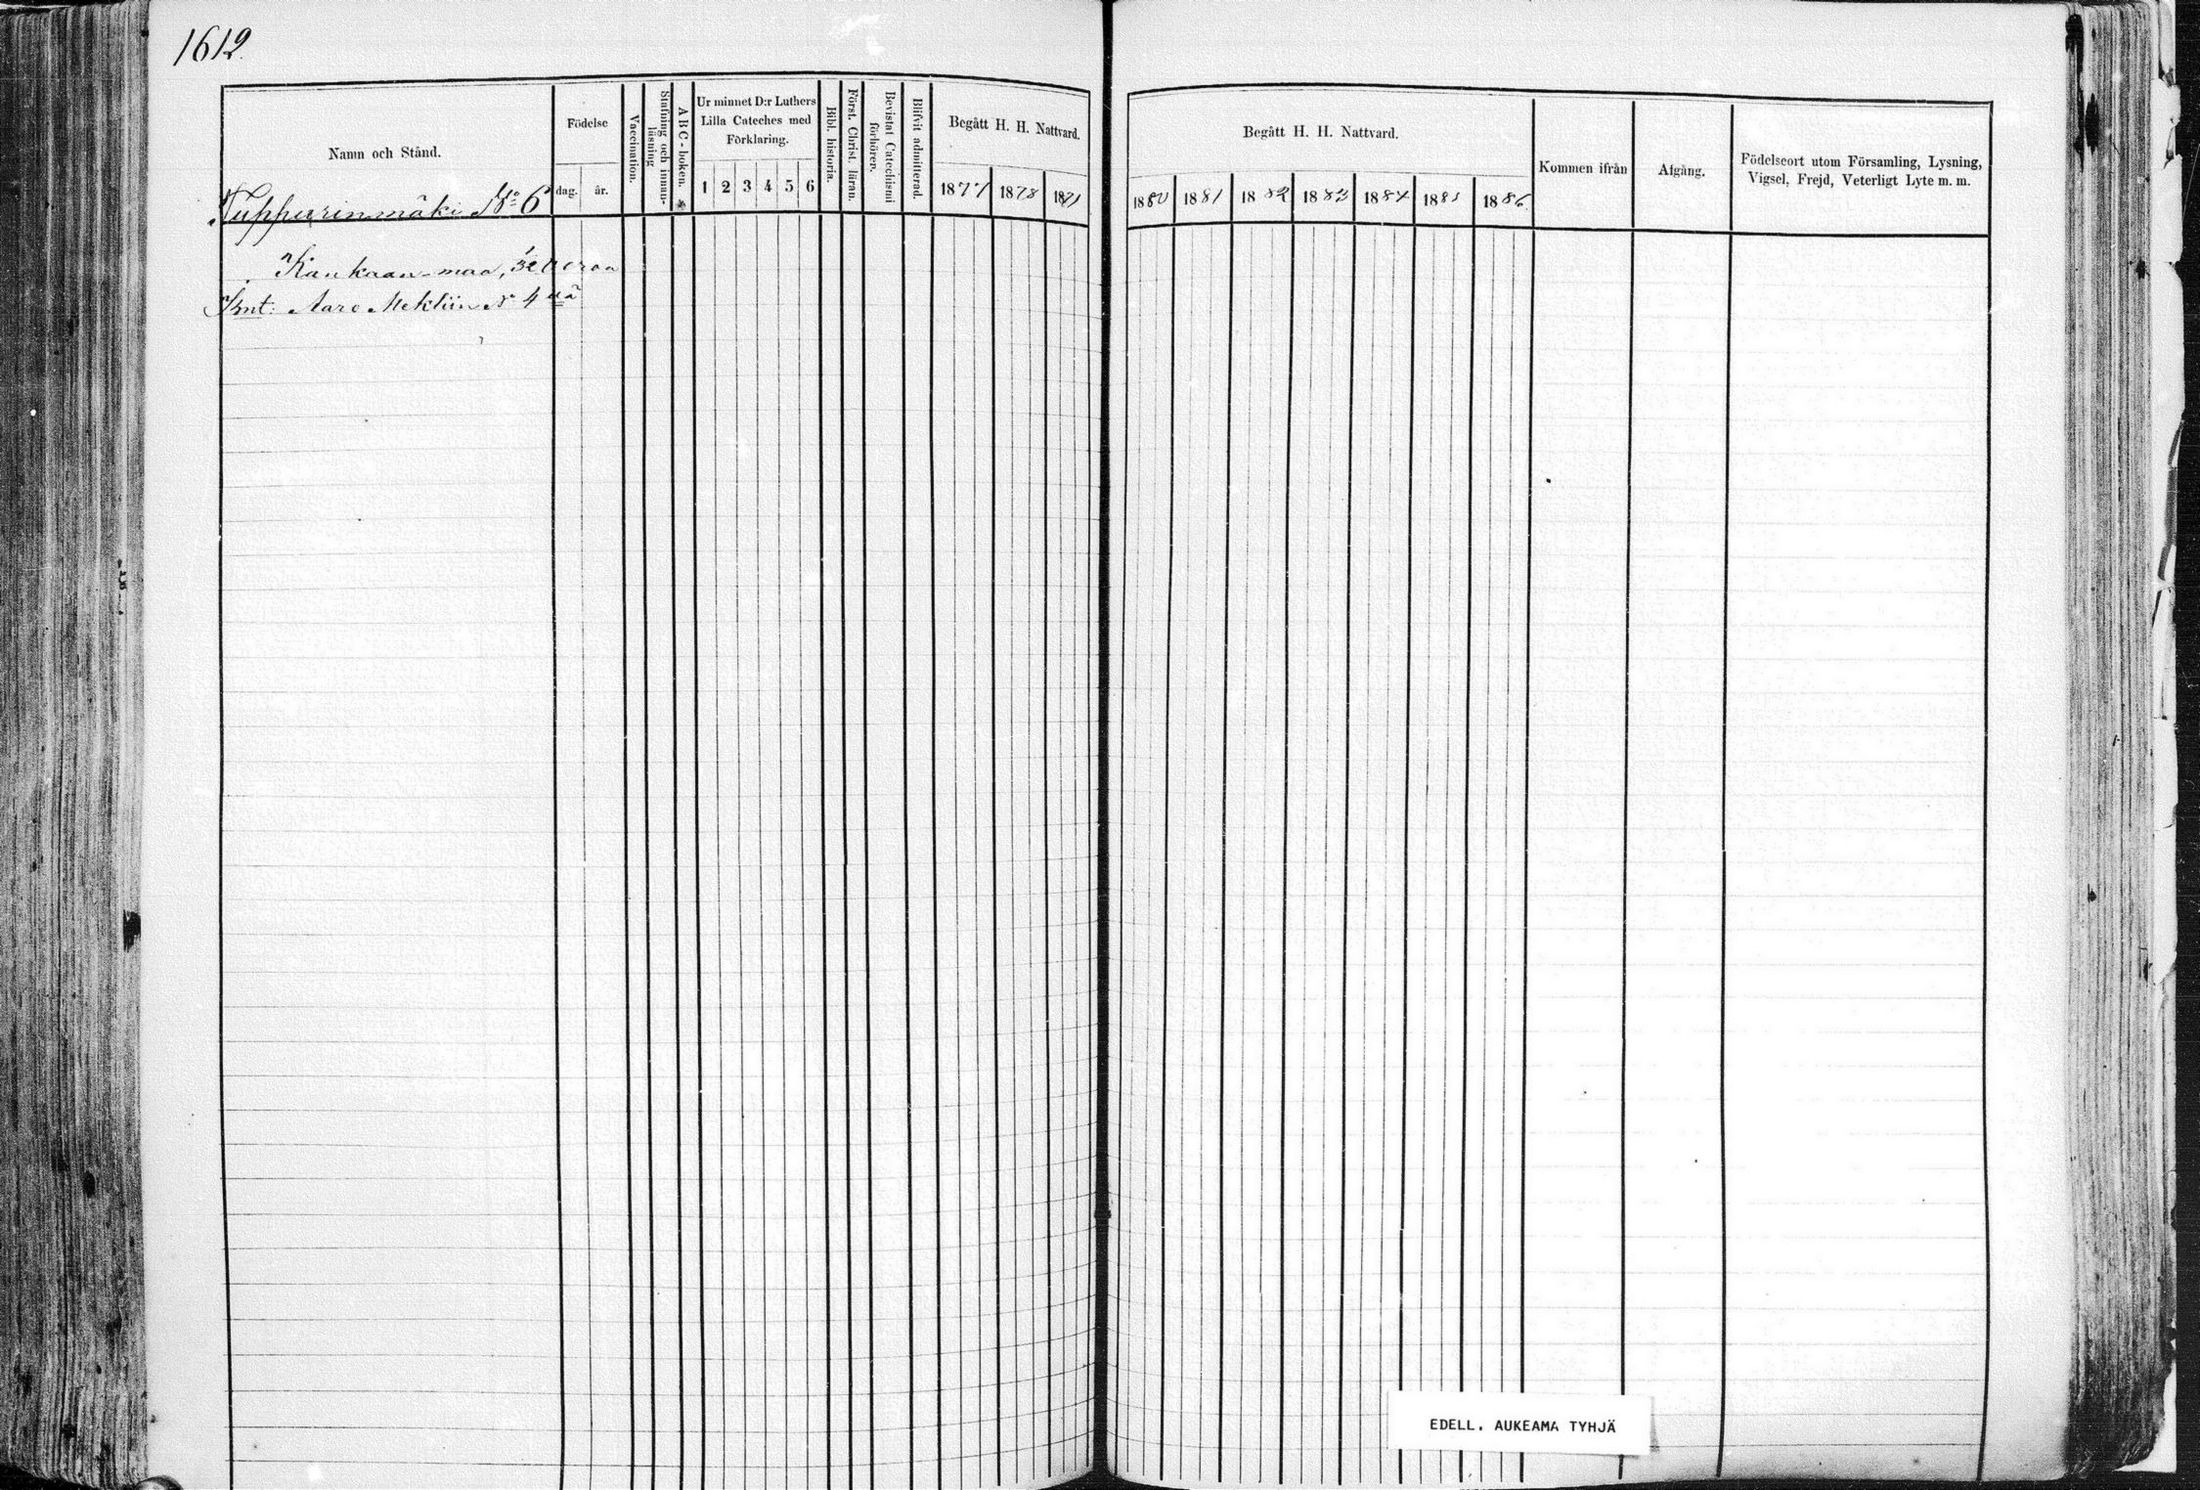 1612.
Namn och Stånd.
Tuppurinmäki No 6
Födelse
dag. år.
Vaccination.
Stafning och innan-läsning
ABC-boken.
Ur minnet D:r Luthers
Lilla Cateches med
Förklaring.
1 2 3 4 5 6
Bibl. historia.
Först. Christ. läran.
Bevistat Catechismi förhören.
Blifvit admitterad.
Begått H. H. Nattvard.
1877 1878 1879
Kankaan-maa,
Int: Aaro Meklin N 4
Begått H. H. Nattvard.
1880 1881 1882 1883 1884 1885 1886
Kommen ifrån
Afgång.
Födelseort utom Församling, Lysning,
Vigsel, Frejd, Veterligt Lyte m. m.
EDELL. AUKEAMA TYHJÄ